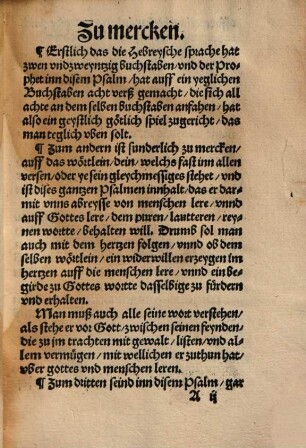 Zu mercken.
¶ Erstlich das die Hebreysche sprache hat
zwen vndzweyntzig buchstaben/vnd der Pro-
phet inn disem Psalm/hat auff ein yeglichen
Buchstaben acht verß gemacht/die sich all
achte an dem selben buchstaben anfahen/hat
also ein geystlich götlich spiel zugericht/das
man teglich vben solt.
¶ Zum andern ist sunderlich zu mercken/
auff das wörtlein/dein/welchs fast inn allen
versen/oder ye sein gleychmessiges stehet/vnd
ist dises gantzen Psalmen innhalt/das er dar-
mit vnns abreysse von menschen lere/vnnd
auff Gottes lere/dem puren/lautteren/rey-
nen wortte/behalten will. Drumb sol man
auch mit dem hertzen folgen/vnnd ob dem
selben wörtlein/ein widerwillen erzeygen im
hertzen auff die menschen lere/vnnd ein be-
girde zu Gottes wortte dasselbige zu fördern
vnd erhalten.
Man muß auch alle seine wort verstehen/
als stehe er vor Gott/zwischen seinen feynden/
die zu im trachten mit gewalt/listen/vnd al-
lem vermügen/mit wellichen er zuthun hat/
vber gottes vnd menschen leren.
¶ Zum dritten seind inn disem Psalm/gar
A ij